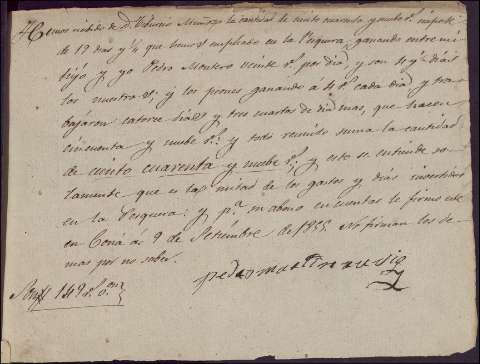 Hemos recibido de D. Tiburcio Mendoza la cantidad de ciento cuarenta y nuebe r.s importe
de 12 dias y ½ que hemos empleado en la Pesquera, ganando entre mi
hijo y yo Pedro Montero veinte r.s por dia, y son 4 y ½ dias
los nuestros; y los peones ganando a 4 r.s cada dia, y tra-
bajaron catorce dias y tres cuartos de dia mas, que hacen
cincuenta y nuebe r.s: y todo reunido suma la cantidad
de ciento cuarenta y nuebe r.s, y esto se entiende so-
lamente que es la mitad de los gastos y dias invertidos
en la Pesquera: y p.a en abono en cuentas le firmo este
en Coná a 9 de Setiembre de 1855. No firman los de-
mas por no saber.
Son 149 r.s v.on